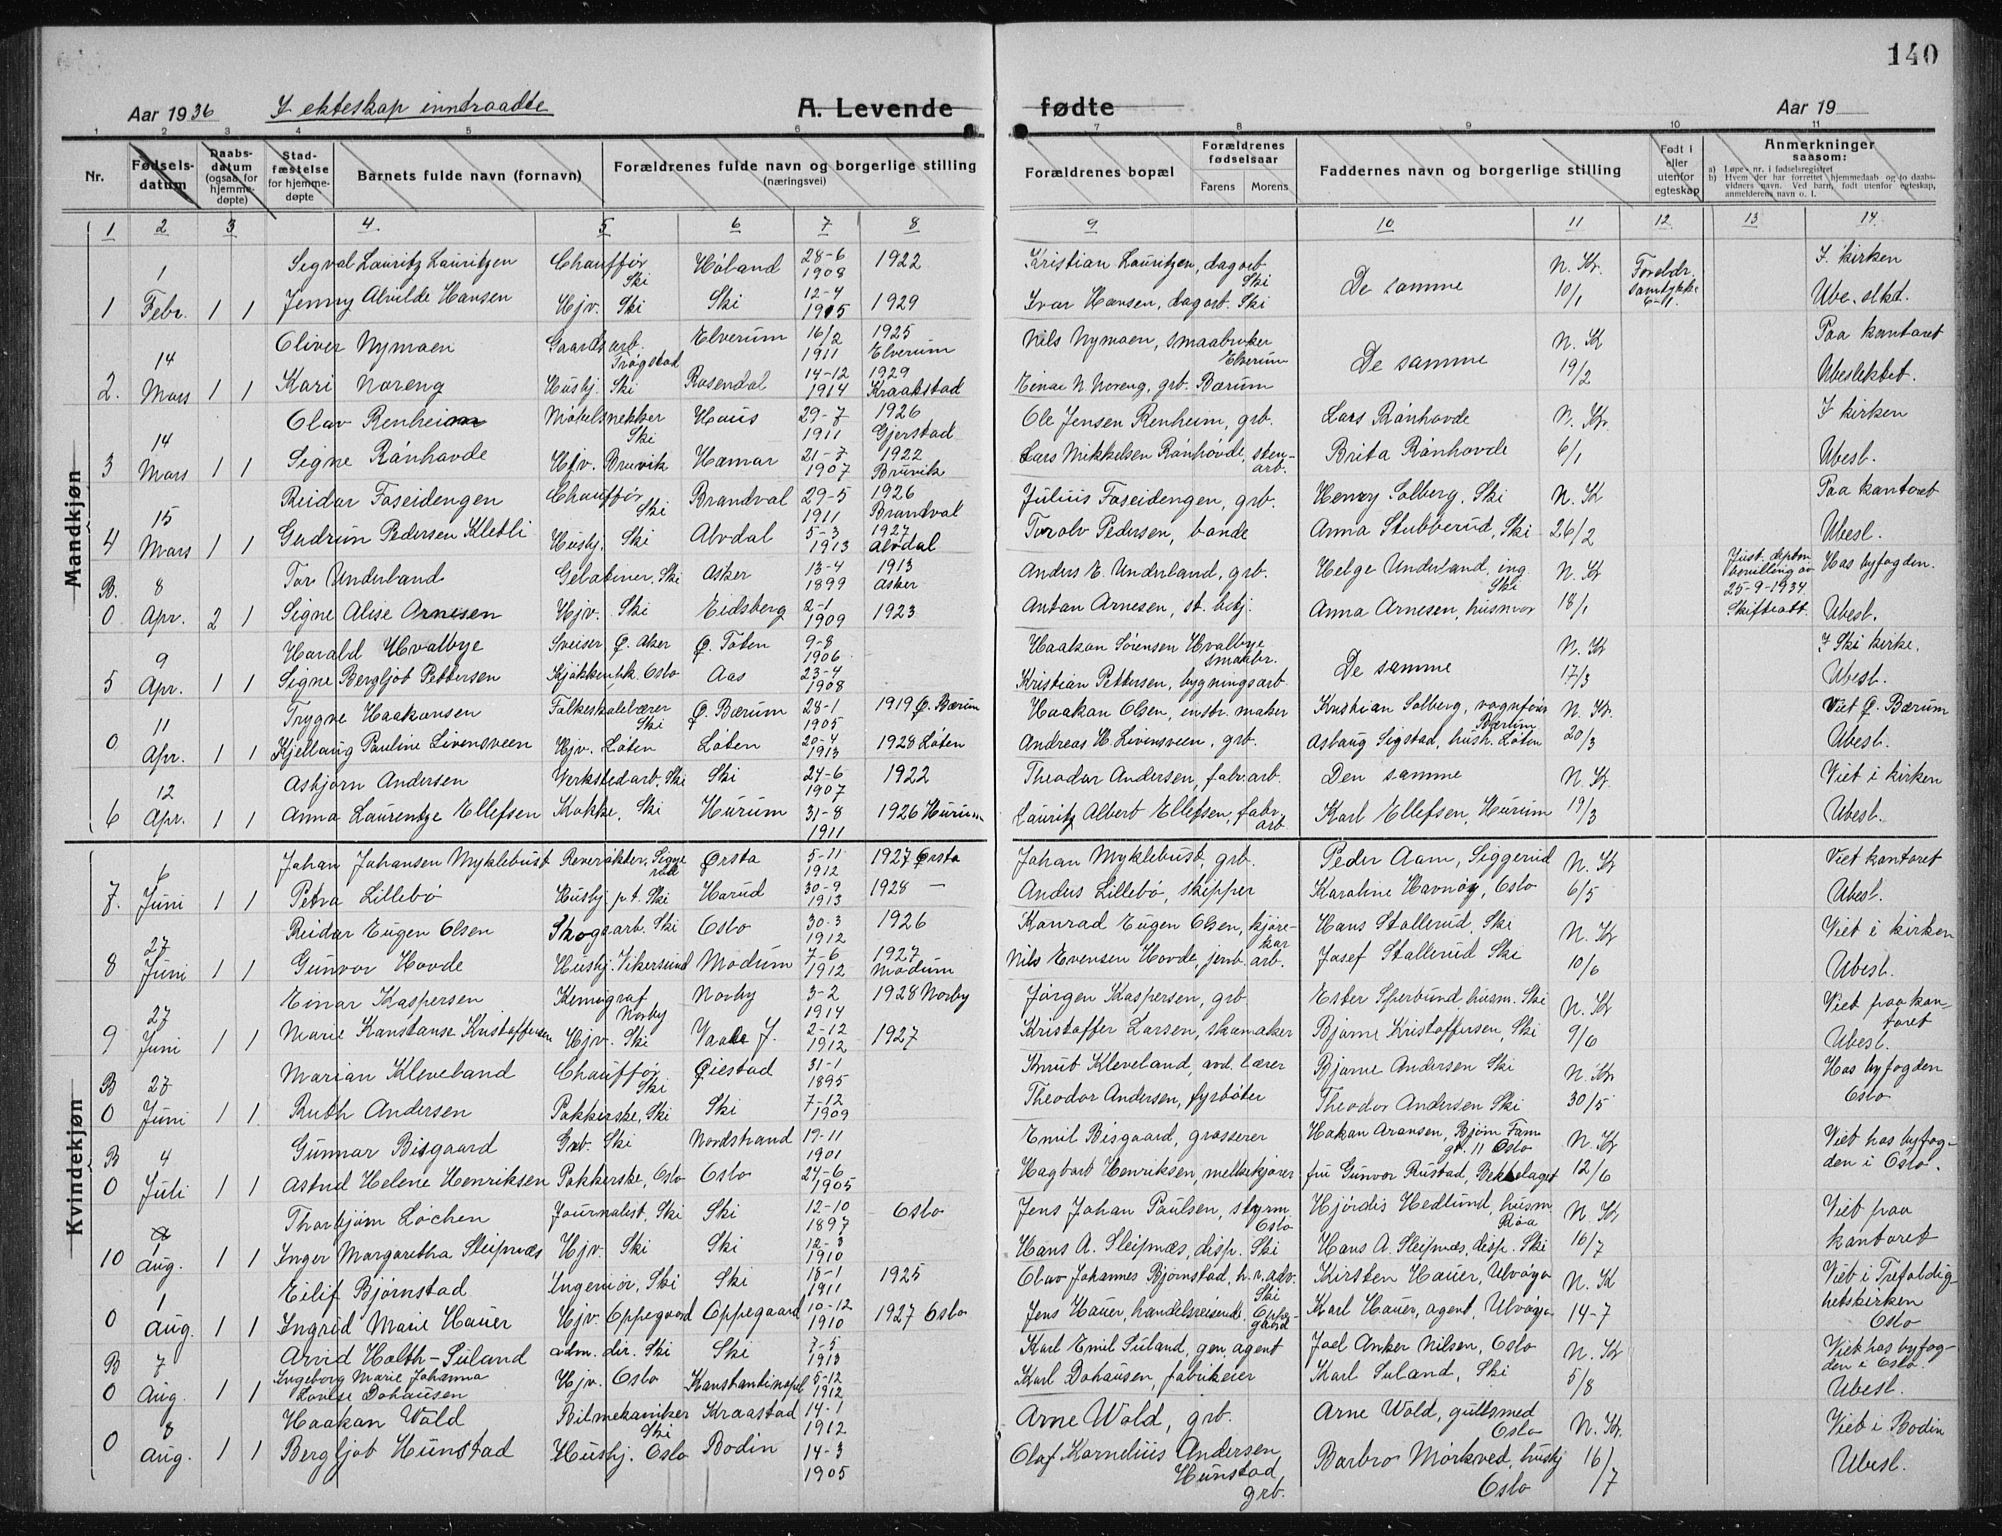 140
Aar 1936 I ekteskap inntraadte A. Levende fødte Aar 19
1 2 3 4 5 6 7 8 9 10 11
Nr. Fødsels-datum Daabs-datum (ogsaa for hjemme-døpte) Stad-fæstelse for hjemme-døpte Barnets fulde navn (fornavn) Forældrenes fulde navn og borgerlige stilling (næringsvei) Forældrenes bopæl Forældrenes fødselsaar Farens Morens Faddernes navn og borgerlige stilling Født i eller utenfor egteskap Anmerkninger saasom:
a) Løpe-nr. i fødselsregistret
b) Hvem der har forrettet hjemmedaab og to daabs-vidners navn. Ved barn, født utenfor egteskap, anmelderens navn o. l.
1 2 3 4. 5 6 7 8 9 10 11 12 13 14.
Mandkjøn
Kvindekjøn
1 Sigval Lauritz Lauritzen Chauffør Ski Høland 28-6 1908 1922 Kristian Lauritzen, dagarb. Ski De samme N. Kr. 10/1 Foreldr. samtykke 6-1. I kirken
1 Febr. 1 1 Jenny Alvilde Hansen Hjv. Ski Ski 12-4 1915 1929 Ivar Hansen, dagarb. Ski Ube.slkt.
14 Oliver Nymoen Gaardsarb. Trøgstad Elverum 16/2 1911 1925 Elverum Nils Nymoen, smaabruker Elverum De samme N. Kr 19/2 Paa kontoret
2. Mars 1 1 Kari Noreng Husbj. Ski Rosendal 14-12 1914 1929 Kraakstad Einar N Noreng, grb. Bærum Ubeslektet.
14 Olav Renheim Møbelsnekker Ski Haus 29-7 1911 1926 Gjerstad Ole Jensen Renheim, grb. Lars Rånhovde N. Kr. 6/1 I kirken
3 Mars 1 1 Signe Rånhovde Hjv. Bruvik Hamar 21-7 1907 1922 Bruvik Lars Mikkelsen Rånhovde, sten-arb. Brita Rånhovde Ubesl.
15 Reidar Foseidengen Chauffør Ski Brandval 29-5 1911 1926 Brandval Julius Foseidengen, grb. Henry Solberg, Ski N. Kr 26/2 Paa kontoret
4 Mars 1 1 Gudrun Pedersen Kletli Husbj. Ski Alvdal 5-3 1913 1927 Alvdal Torolv Pedersen, bonde Anna Stubberud, Ski Ubesl.
B. 8 Tor Underland Gelatiner. Ski Asker 13-4 1899 1913 Asker Anders E. Underland, grb. Helge Underland, ing. Ski N. Kr 18/1 25-9-1934 Skifteatt. Hos byfogden.
0 Apr. 2 1 Signe Alise Arnesen Hjv. Ski Eidsberg 2-1 1909 1923 Anton Arnesen, st. betj. Anna Arnesen, husmor Ubesl.
9 Harald Hvalbye Sveiser Ø. Aker Ø. Toten 9-8 1906 Haakon Sørensen Hvalbye smaabr. De samme N. Kr 17/3 I Ski kirke.
5 Apr. 1 1 Signe Bergljot Pettersen Kjøkkenhk. Oslo Aas 23-4 1908 Kristian Pettersen, bygningsarb Ubesl.
11 Trygve Haakonsen Folkeskolelærer Ski Ø. Bærum 28-1 1905 1919 Ø. Bærum Haakon Olsen, instr. maker Kristian Solberg, vognfører Bærum N. Kr. 20/3 Viet Ø. Bærum
0 Apr. 1 1 Kjellaug Pauline Livensveen Hjv. Løten Løten 20-4 1913 1928 Løten Andreas H. Livensveen, grb. Asbaug Sigstad, hush. Løten Ubesl.
12 Asbjørn Andersen Verkstedarb. Ski Ski 24-6 1907 1922 Theodor Andersen, fabr.arb. Den samme N. Kr. 19/3 Viet i kirken
6 Apr. 1 1 Anna Laurentze Ellefsen Kokke, Ski Hurum 31-8 1911 1926 Hurum Lauritz Albert Ellefsen, fabr. arb. Karl Ellefsen, Hurum Ubesl.
1 Johan Johansen Myklebust Reverøkter, Ørsta 5-11 1912 1927 Ørsta Johan Myklebust, grb. Peder Aam, Siggerud N. Kr 6/5 Viet kontoret
7. Juni 1 1 Petra Lillebø Husbj. p.t. Ski Harud 30-9 1913 1928 — Anders Lillebø, skipper Karoline Havnøy, Oslo Ubesl.
27 Reidar Eugen Olsen Skogsarb. Ski Oslo 30-3 1912 1926 Konrad Eugen Olsen, kjøre-kar Hans Stallerud, Ski N. Kr 10/6 Viet i kirken
8 Juni 1 1 Gunvor Hovde Husbj. Vikersund Modum 7-6 1912 1927 Modum Nils Evensen Hovde, jernb. arb. Josef Stallerud Ski Ubesl.
27 Einar Kaspersen Kemigraf Norby Norby 3-2 1914 1928 Norby Jørgen Kaspersen, grb Ester Sperbund husm. Ski N. Kr 9/6 Viet paa kon-toret
9 Juni 1 1 Marie Konstanse Kristoffersen Hjv. Ski Vaale J. 2-12 1912 1927 Kristoffer Larsen, skomaker Bjarne Kristoffersen, Ski Ubesl.
B 27 Marian Kleveland Chauffør Ski Øiestad 31-1 1895 Knut Kleveland, avd. lærer Bjarne Andersen Ski N. Kr. 30/5 Hos byfogden Oslo
0 Juni 1 1 Ruth Andersen Pakkerske, Ski Ski 7-12 1909 Theodor Andersen, fyrbøter Theodor Andersen Ski
B 4 Gunnar Bisgaard Grb. Ski Nordstrand 19-11 1901 Emil Bisgaard, grosserer Hakon Aronsen, Bjørn Farm gt. 11 Oslo N. Kr 12/6 Viet hos byfog-den i Oslo.
0 Juli 1 1 Astrid Helene Henriksen Pakkerske, Oslo Oslo 24-6 1905 Hagbart Henriksen, melkekjører fru Gunvor Rustad, Bekkelaget
1 Thorbjørn Løchen Journalist, Ski Ski 12-10 1897 Oslo Jens Johan Paulsen, styrm. Oslo Hjørdis Hedlund, husm Røa N. Kr 16/7 Viet paa kontoret
10 Aug. 1 1 Inger Margaretha Sleipnæs Hjv. Ski Ski 12-3 1910 Hans A. Sleipnæs, disp. Ski Hans A. Sleipnæs, disp. Ski
1 Eilif Bjørnstad Ingeniør, Ski Ski 18-1 1911 1925 Olav Johannes Bjørnstad, h.r.adv. Ski Kirsten Hauer, Ulvøya N. K 14-7 Viet i Trefoldig hetskirken Oslo
0 Aug. 1 1 Ingrid Marie Hauer Hjv. Oppegaard Oppegaard 10-12 1910 1927 Oslo Jens Hauer, handelsreisende. Oppe-gaard Karl Hauer, agent, Ulvøya
B 7 Arvid Holth-Suland adm. dir. Ski Ski 7-5 1913 Karl Emil Suland, gen. agent Joel Anker Nilsen, Oslo N. Kr 5/8 Viet hos byfog-den i Oslo.
0 Aug. 1 1 Ingeborg Marie Johanna Lovise Dohausen Hjv. Oslo Konstantinopel 5-12 1912 Karl Dohausen, fabrikeier Karl Suland, Ski Ubesl.
8 Haakon Wold Bilmekaniker Ski Kraastad 14-1 1912 Arne Wold, grb. Arne Wold, gullsmed Oslo N. Kr. 16/7 Viet i Bodin
0 Aug. 1 1 Bergljot Hunstad Husbj. Oslo Bodin 14-3 1905 Olaf Kornelius Andersen Hunstad, grb. Barbro Mørkved, husbj Oslo Ubesl.